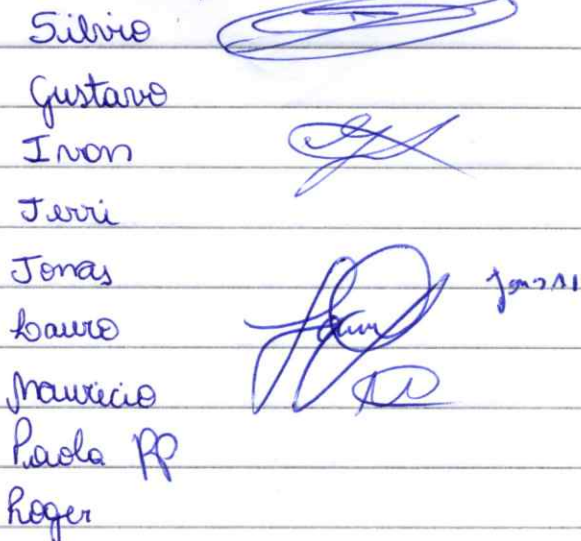 Silvio
Gustavo
Ivon
Jerri
Jonas
Lauro
Mauricio
Paola PP
Roger